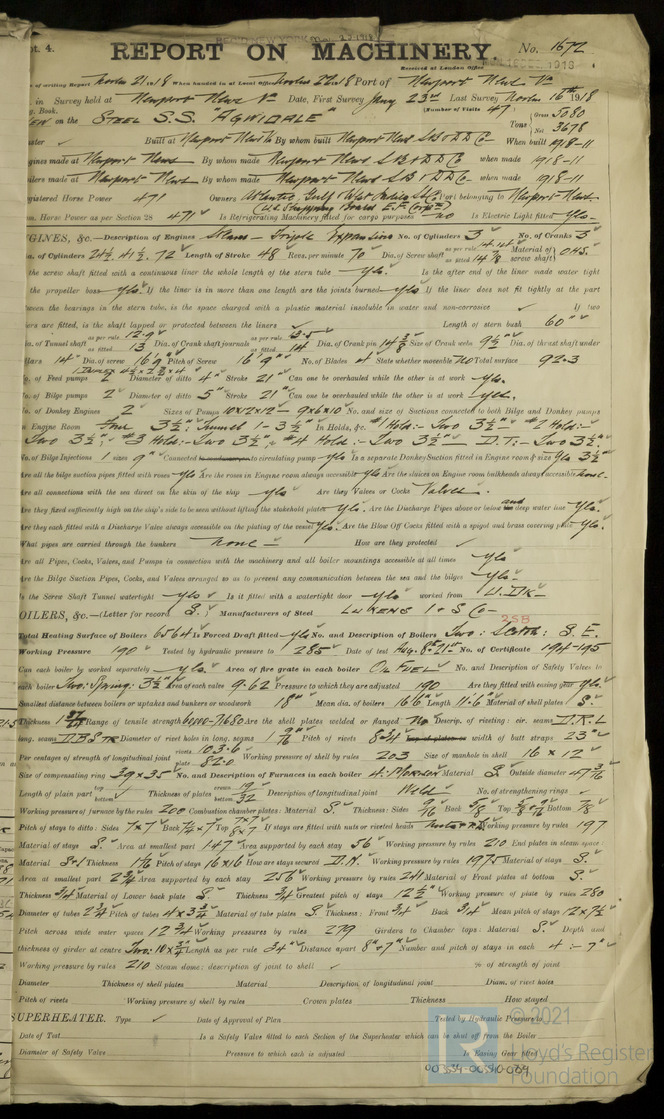 pt. 4.
REPORT ON MACHINERY.
No. 1672
Received at London Office
of writing Report Novbr 21 1918 When handed in at Local Office Novbr 22 1918 Port of Newport News Va
in Survey held at Newport News Va Date, First Survey Jany 23rd Last Survey Novbr 16th 1918
g. Book. (Number of Visits 47)
on the Steel S.S. "AGWIDALE" Tons Gross 5080 Net 3678
Built at Newport News Va By whom built Newport News SB & DD Co When built 1918-11
gines made at Newport News By whom made Newport News SB & DD Co when made 1918-11
oilers made at Newport News By whom made Newport News SB & DD Co when made 1918-11
gistered Horse Power 471 Owners Atlantic, Gulf & West Indies SS Co Port belonging to Newport News
(U.S. Shipping Board E.F. Corpn)
m. Horse Power as per Section 28 471 Is Refrigerating Machinery fitted for cargo purposes no Is Electric Light fitted yes
GINES, &c.—Description of Engines Triple Expansion No. of Cylinders 3 No. of Cranks 3
a. of Cylinders 24½, 41½, 72 Length of Stroke 48 Revs. per minute 70 Dia. of Screw shaft as per rule 14.14 as fitted 14⅞ Material of screw shaft O.H.S.
the screw shaft fitted with a continuous liner the whole length of the stern tube yes. Is the after end of the liner made water tight
the propeller boss yes. If the liner is in more than one length are the joints burned yes If the liner does not fit tightly at the part
ween the bearings in the stern tube, is the space charged with a plastic material insoluble in water and non-corrosive If two
ers are fitted, is the shaft lapped or protected between the liners Length of stern bush 60"
ia. of Tunnel shaft as per rule 12.9 as fitted 13 Dia. of Crank shaft journals as per rule 13.5 as fitted 14 Dia. of Crank pin 14⅜ Size of Crank webs 9½ Dia. of thrust shaft under
llars 14" Dia. of screw 16'9" Pitch of Screw 16'9" No. of Blades 4 State whether moveable no Total surface 92.3
o. of Feed pumps 2 Diameter of ditto 4" Stroke 21" Can one be overhauled while the other is at work yes.
o. of Bilge pumps 2 Diameter of ditto 5" Stroke 21" Can one be overhauled while the other is at work yes.
o. of Donkey Engines 2 Sizes of Pumps 10x12x12 – 9x6x10 No. and size of Suctions connected to both Bilge and Donkey pumps
n Engine Room Four 3½"; Tunnel 1-3½" In Holds, &c. #1 Hold:- Two 3½" #2 Hold:-
Two 3½"; #3 Hold:- Two 3½"; #4 Hold:- Two 3½" D.T.:- Two 3½"
No. of Bilge Injections 1 sizes 9" Connected to circulating pump yes Is a separate Donkey Suction fitted in Engine room & size yes 3½"
Are all the bilge suction pipes fitted with roses yes Are the roses in Engine room always accessible yes Are the sluices on Engine room bulkheads always accessible none.
Are all connections with the sea direct on the skin of the ship yes Are they Valves or Cocks Valves.
Are they fixed sufficiently high on the ship's side to be seen without lifting the stokehold plates yes. Are the Discharge Pipes above or below the deep water line and yes.
Are they each fitted with a Discharge Valve always accessible on the plating of the vessel yes. Are the Blow Off Cocks fitted with a spigot and brass covering plate yes.
What pipes are carried through the bunkers none How are they protected
Are all Pipes, Cocks, Valves, and Pumps in connection with the machinery and all boiler mountings accessible at all times yes
Are the Bilge Suction Pipes, Cocks, and Valves arranged so as to prevent any communication between the sea and the bilges yes
Is the Screw Shaft Tunnel watertight yes Is it fitted with a watertight door yes worked from U. DK
OILERS, &c.—(Letter for record S.) Manufacturers of Steel LUKENS I & S Co
258
Total Heating Surface of Boilers 6564 Is Forced Draft fitted yes No. and Description of Boilers Two: Scotch: S.E.
Working Pressure 190 Tested by hydraulic pressure to 285 Date of test Aug. 8th 21st No. of Certificate 194-195
Can each boiler be worked separately yes. Area of fire grate in each boiler OIL FUEL No. and Description of Safety Valves to
each boiler Two: Spring: 3½ Area of each valve 9.62 Pressure to which they are adjusted 190 Are they fitted with easing gear yes.
Smallest distance between boilers or uptakes and bunkers or woodwork 18" Mean dia. of boilers 16'6" Length 11'6" Material of shell plates S.
Thickness Range of tensile strength 60000-71680 Are the shell plates welded or flanged No Descrip. of riveting: cir. seams D.R.L
long. seams D.B.S. TR Diameter of rivet holes in long. seams 1 9/16" Pitch of rivets 8¾ width of butt straps 23"
Per centages of strength of longitudinal joint rivets 103.6 plate 82.0 Working pressure of shell by rules 203 Size of manhole in shell 16 x 12
Size of compensating ring 39x35 No. and Description of Furnaces in each boiler 4: Morison Material S. Outside diameter 47 3/16
Length of plain part top bottom Thickness of plates crown 19/32 bottom Description of longitudinal joint Weld No. of strengthening rings
Working pressure of furnace by the rules 200 Combustion chamber plates: Material S. Thickness: Sides 9/16 Back 5/8 Top 5/8 & 9/16 Bottom 7/8
Pitch of stays to ditto: Sides 7x7 Back 7½x7 Top 7x7 8x7 If stays are fitted with nuts or riveted heads Working pressure by rules 197
Material of stays S. Area at smallest part 1.47 Area supported by each stay 56 Working pressure by rules 210 End plates in steam space:
Material S Thickness 1 1/16 Pitch of stays 16x16 How are stays secured D.N. Working pressure by rules 197.5 Material of stays S.
Area at smallest part 2¾ Area supported by each stay 256 Working pressure by rules 241 Material of Front plates at bottom S.
Thickness ¾ Material of Lower back plate S. Thickness ¾ Greatest pitch of stays 12½" Working pressure of plate by rules 280
Diameter of tubes 2¾ Pitch of tubes 4x3¾ Material of tube plates S. Thickness: Front ¾ Back ¾ Mean pitch of stays 12x7½"
Pitch across wide water spaces 12¾ Working pressures by rules 279 Girders to Chamber tops: Material S. Depth and
thickness of girder at centre Two: 10x¾ Length as per rule 34" Distance apart 8" & 7" Number and pitch of stays in each 4 :- 7"
Working pressure by rules 210 Steam dome: description of joint to shell % of strength of joint
Diameter Thickness of shell plates Material Description of longitudinal joint Diam. of rivet holes
Pitch of rivets Working pressure of shell by rules Crown plates Thickness How stayed
SUPERHEATER. Type Date of Approval of Plan Tested by Hydraulic Pressure to
Date of Test Is a Safety Valve fitted to each Section of the Superheater which can be shut off from the Boiler
Diameter of Safety Valve Pressure to which each is adjusted Is Easing Gear fitted
© 2021
Lloyd's Register
Foundation